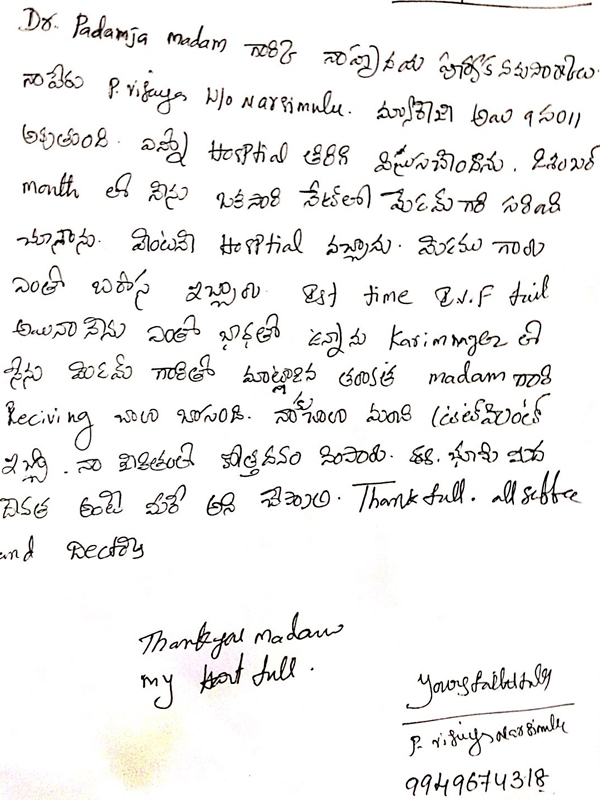 Dr. Padamja madam గారికి నా హృదయ పూర్వక నమస్కారములు
నా పేరు P. vijaya W/o Narsimulu. మ్యారేజి అయి 9 సం॥
అవుతుంది. ఎన్నో Hosptial తిరిగి విసుగుచెందాను. డిశంబర్
month లో నేను ఒకసారి నెట్‌లో మేడమ్ గారి గురించి
చూసాను. వెంటనే Hosptial వచ్చాను. మేడమ్ గారు
ఎంతో బరోస ఇచ్చారు. Ist time I.V.F fail
అయినా నేను ఎంతో బాధతో ఉన్నాను Karimnagar లో
నేను మేడమ్ గారితో మాట్లాడిన తరువాత madam గారి
Reciving చాలా బాగుంది. నాకు చాలా మంచి ట్రీట్‌మెంట్
ఇచ్చి. నా జీవితంలో కొత్తదనం నింపారు. ఈ భూమి మీద
దేవత ఉంటే మీరే అని చెప్పాలి. Thank full. all
and Doctors
Thank you madam
my Heart full.
Yours faithfully
P. vijaya Narsimulu
9949674318